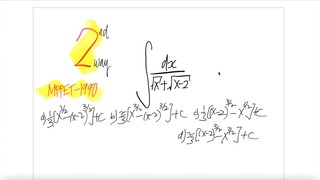 2nd way
MPPET-1990
∫ dx / (√x + √x-2) .
a) 1/3[x^3/2 - (x-2)^3/2] + C b) 2/3[x^3/2 - (x-2)^3/2] + C c) 1/3[(x-2)^3/2 - x^3/2] + C
d) 2/3[(x-2)^3/2 - x^3/2] + C